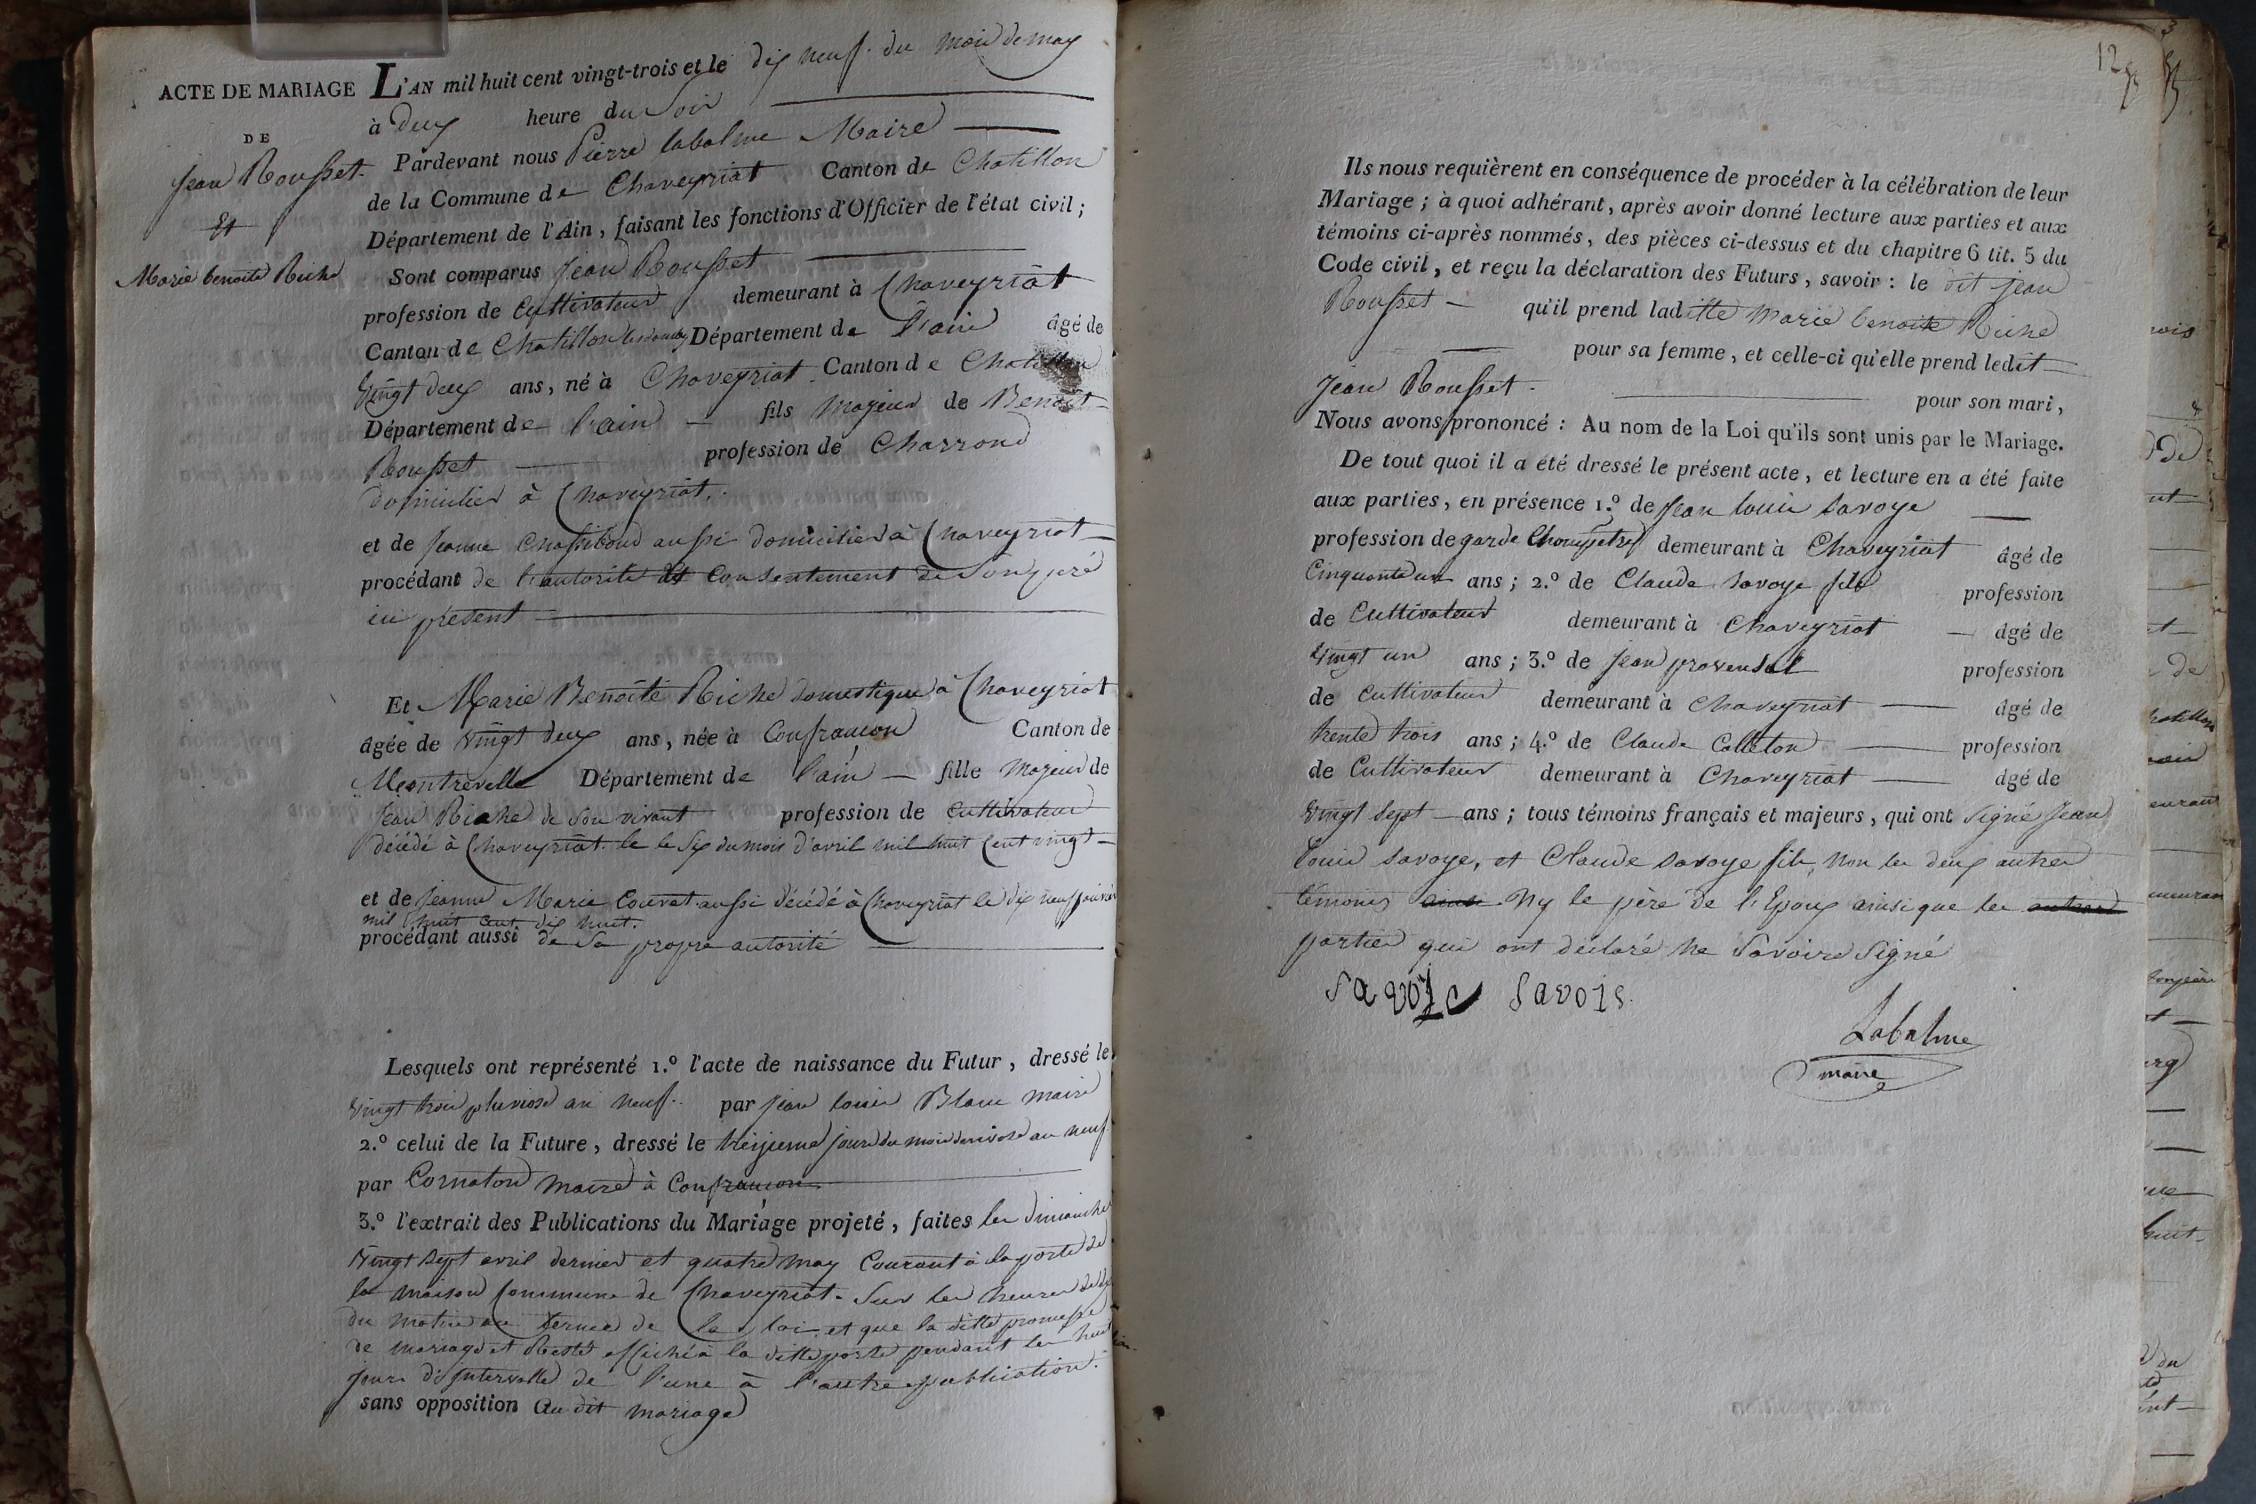 ACTE DE MARIAGE
DE
Jean Rousset
Et
Marie benoite Riche
L'AN mil huit cent vingt-trois et le dix neuf du mois de may
à deux heure du Soir
Pardevant nous Pierre labalme Maire
de la Commune de Chaveyriat Canton de Chatillon
Département de l'Ain, faisant les fonctions d'Officier de l'état civil ;
Sont comparus Jean Rousset
profession de Cultivateur demeurant à Chaveyriat
Canton de Chatillon les dombes Département de l'ain âgé de
Vingt deux ans, né à Chaveyriat Canton de Chatillon
Département de l'ain fils majeur de Benoit
Rousset profession de Charron
domicilier à Chaveyriat.
et de Jeanne aussi domicilier à Chaveyriat
procédant de l'autorité et Consentement de Son père
ici présent
Et Marie Benoite Riche domestique à Chaveyriat
âgée de vingt deux ans, née à Confrancon Canton de
Montrevelle Département de l'ain fille majeur de
Jean Riche de son vivant profession de Cultivateur
décédé à Chaveyriat le le Six du mois d'avril mil huit Cent vingt
et de Jeanne Marie Couvat aussi décédé à Chaveyriat le dix neuf janvier
mil huit cent dix huit.
procédant aussi de Sa propre autorité
Lesquels ont représenté 1.º l'acte de naissance du Futur, dressé le
Vingt trois pluviose an neuf par Jean louis Blanc maire
2.º celui de la Future, dressé le treizieme jour du mois de nivose an neuf
par Cornaton maire à Confrancon
3.º l'extrait des Publications du Mariage projeté, faites les dimanches
Vingt Sept avril dernier et quatre may Courant à la porte de
la maison Commune de Chaveyriat Sur les heures de dix
du matin au terme de la loi, et que la ditte promesse
de mariage et Resté affiché à la ditte porte pendant les huit
jours d'Intervalle de l'une à l'autre publication.
sans opposition au dit mariage
12
Ils nous requièrent en conséquence de procéder à la célébration de leur
Mariage ; à quoi adhérant, après avoir donné lecture aux parties et aux
témoins ci-après nommés, des pièces ci-dessus et du chapitre 6 tit. 5 du
Code civil, et reçu la déclaration des Futurs, savoir : le dit jean
Rousset qu'il prend laditte Marie benoite Riche
pour sa femme, et celle-ci qu'elle prend ledit
Jean Rousset. pour son mari,
Nous avons prononcé : Au nom de la Loi qu'ils sont unis par le Mariage.
De tout quoi il a été dressé le présent acte, et lecture en a été faite
aux parties, en présence 1.º de Jean louis Savoye
profession de garde Champetre demeurant à Chaveyriat âgé de
Cinquante un ans ; 2.º de Claude Savoye fils profession
de Cultivateur demeurant à Chaveyriat âgé de
Vingt un ans ; 3.º de Jean provensal profession
de Cultivateur demeurant à Chaveyriat âgé de
trente trois ans ; 4.º de Claude Colleton profession
de Cultivateur demeurant à Chaveyriat âgé de
Vingt Sept ans ; tous témoins français et majeurs, qui ont Signé Jean
louis Savoye, et Claude Savoye fils, non les deux autres
témoins ainsi Ny le père de l'Epoux ainsi que les
parties qui ont déclaré ne Savoire Signé
Savoye Savois
Labalme
maire